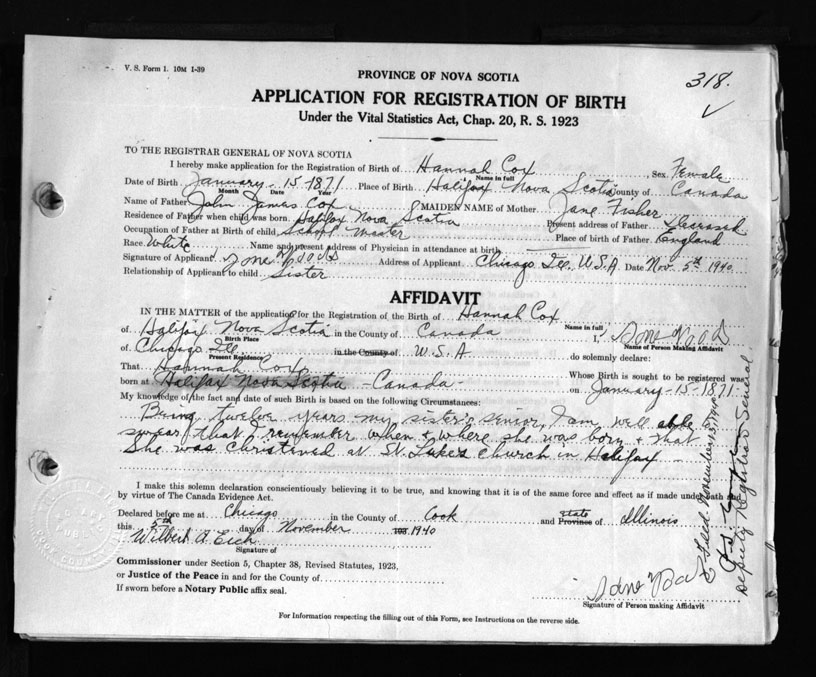 V. S. Form 1. 10M 1-39
318.
PROVINCE OF NOVA SCOTIA
APPLICATION FOR REGISTRATION OF BIRTH
Under the Vital Statistics Act, Chap. 20, R. S. 1923
TO THE REGISTRAR GENERAL OF NOVA SCOTIA
I hereby make application for the Registration of Birth of Hannah Cox Sex Female
Name in full
Date of Birth January 15-1871 Place of Birth Halifax Nova Scotia County of Canada
Month Date Year
Name of Father John James Cox MAIDEN NAME of Mother Jane Fisher
Residence of Father when child was born Halifax Nova Scotia Present address of Father Deceased
Occupation of Father at Birth of child School Master Place of birth of Father England
Race White Name and present address of Physician in attendance at birth
Signature of Applicant Address of Applicant Chicago Ill. U.S.A. Date Nov. 5th 1940
Relationship of Applicant to child Sister
AFFIDAVIT
IN THE MATTER of the application for the Registration of the Birth of Hannah Cox
Name in full
of Halifax Nova Scotia in the County of Canada I,
Birth Place Name of Person Making Affidavit
of Chicago Ill. in the County of U.S.A. do solemnly declare:
Present Residence
That Hannah Cox Whose Birth is sought to be registered was
born at Halifax Nova Scotia - Canada - on January-15-1871-
My knowledge of the fact and date of such Birth is based on the following Circumstances:
Being twelve years my sister's senior, I am well able
swear that I remember when & where she was born & that
She was Christened at St. Luke's Church in Halifax
I make this solemn declaration conscientiously believing it to be true, and knowing that it is of the same force and effect as if made under oath and
by virtue of The Canada Evidence Act.
Declared before me at Chicago in the County of Cook and State Province of Illinois
this 5th day of November 193 1940
Wilbert A. Eich
Signature of
Commissioner under Section 5, Chapter 38, Revised Statutes, 1923,
or Justice of the Peace in and for the County of
If sworn before a Notary Public affix seal.
Signature of Person making Affidavit
For Information respecting the filling out of this Form, see Instructions on the reverse side.
Filed November 1940
Deputy Registrar General